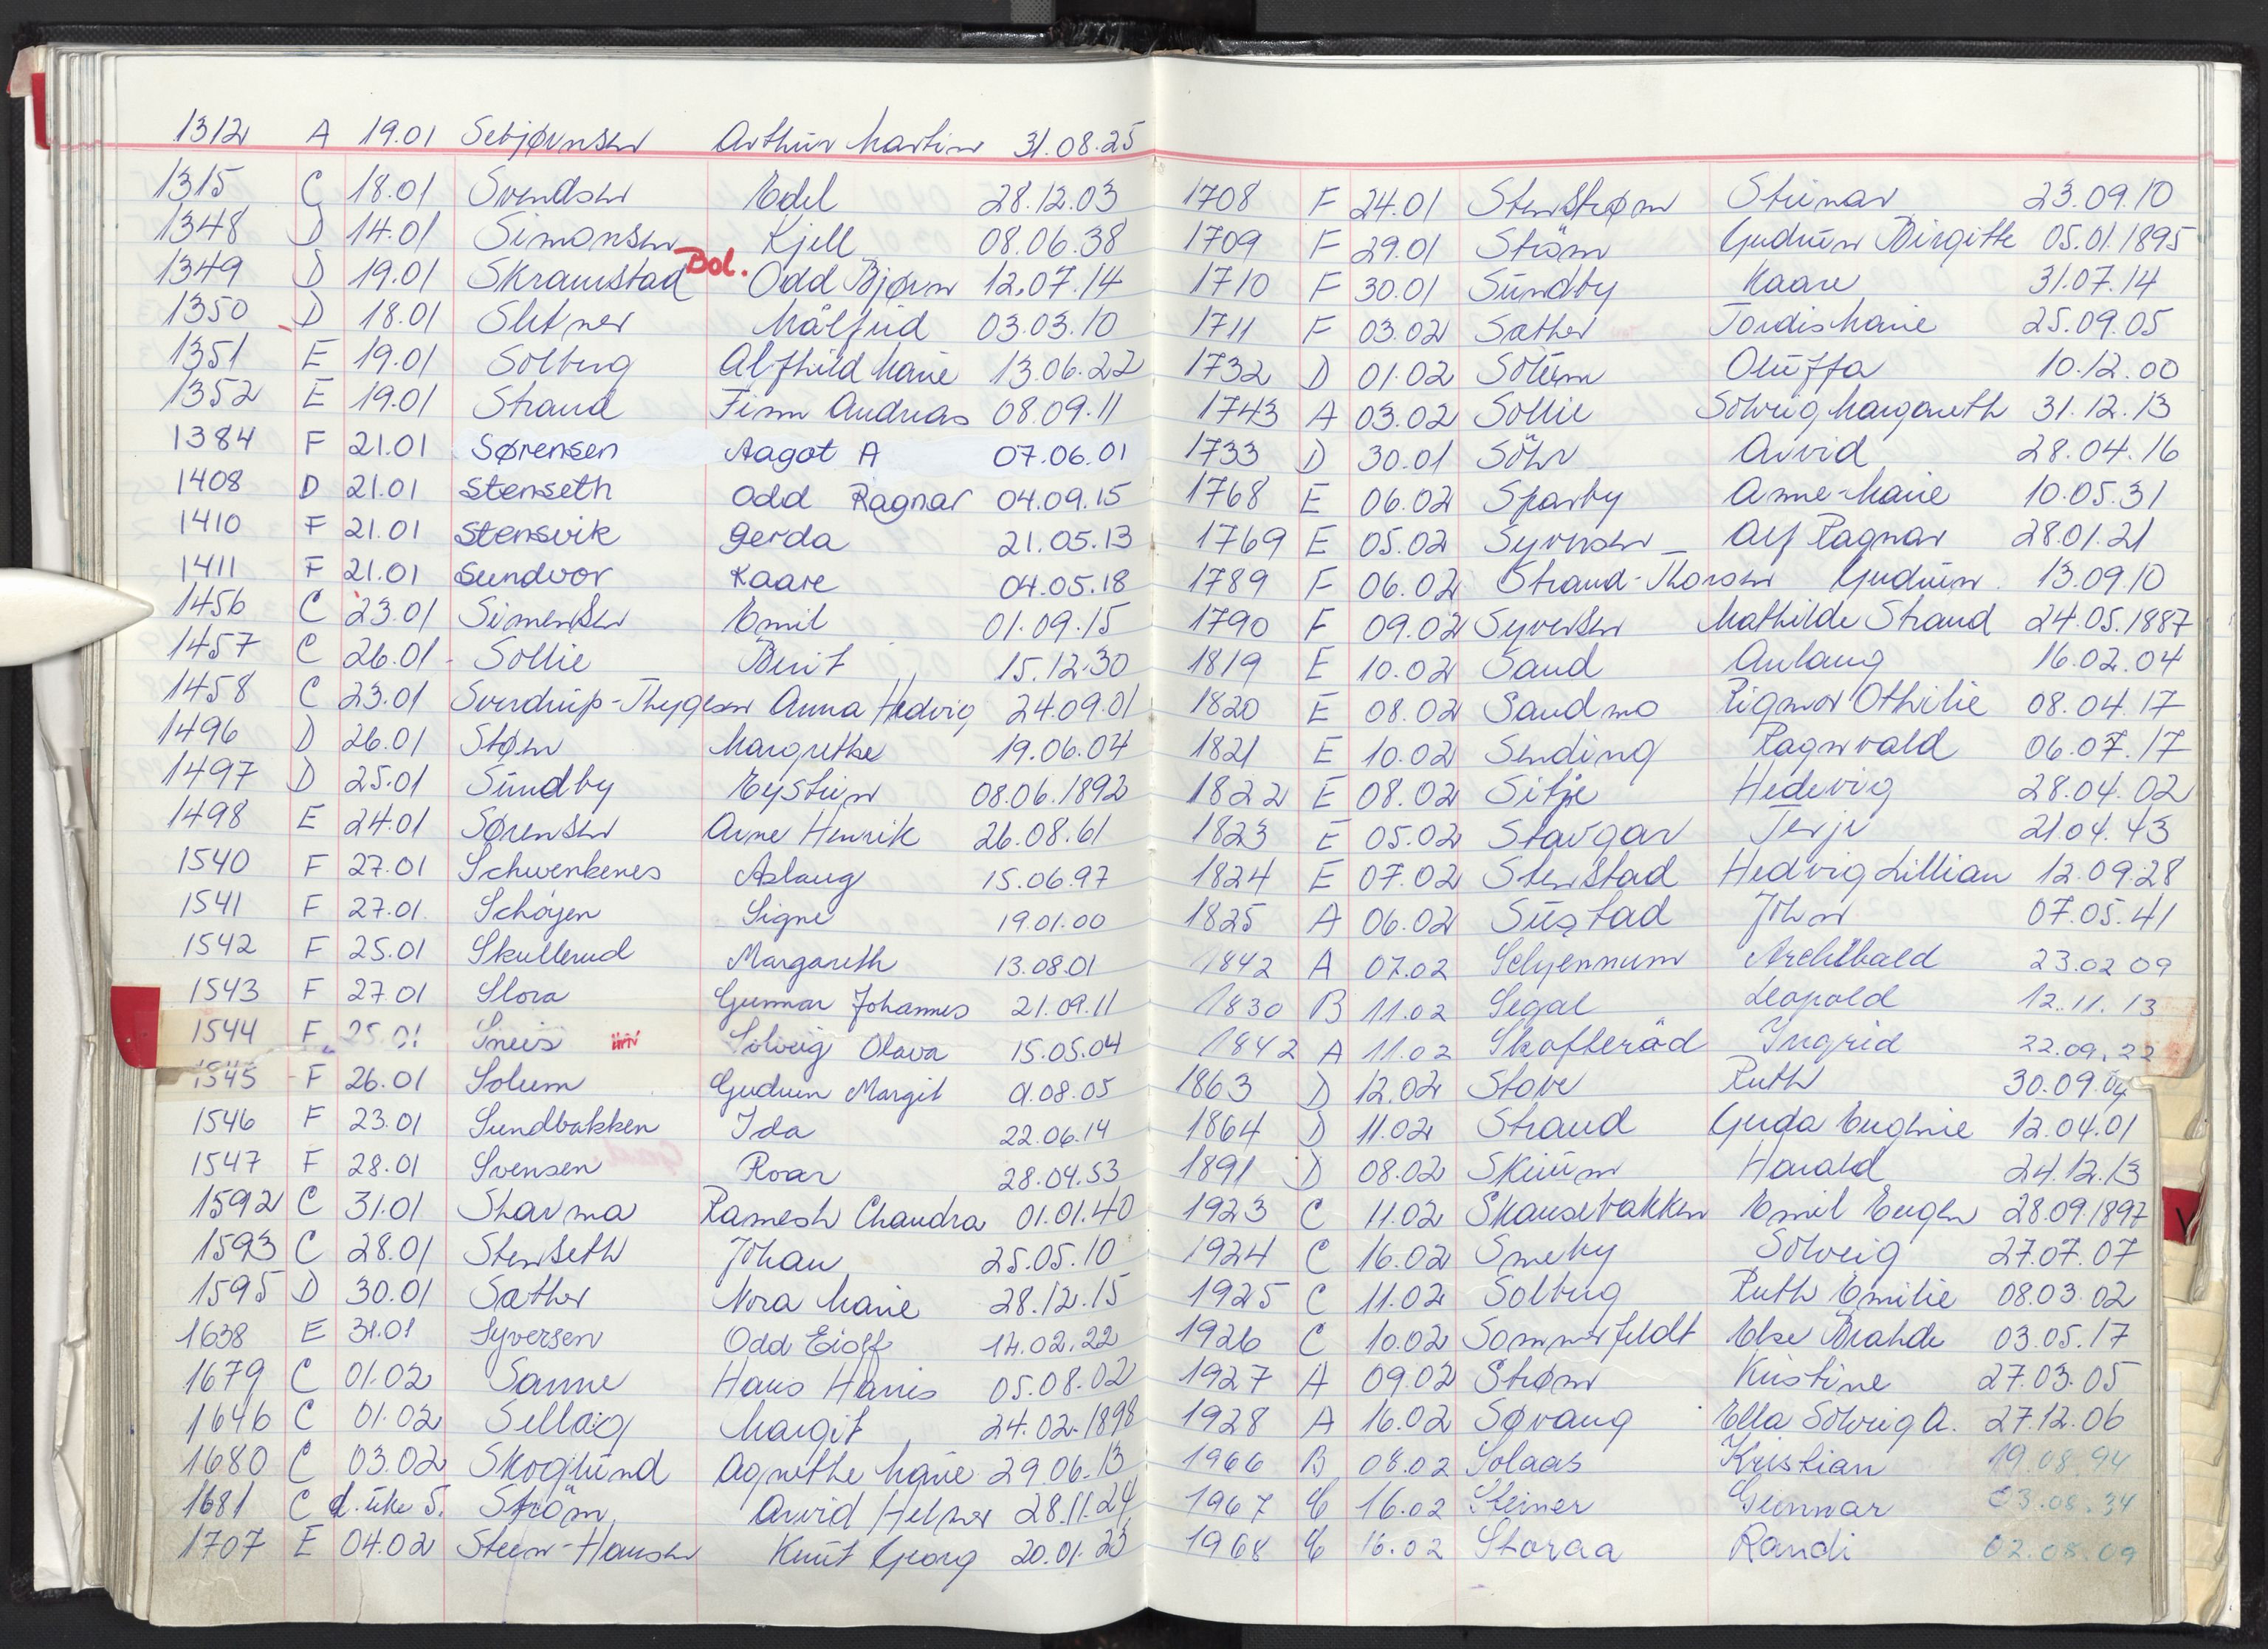 1312 A 19.01 Sebjørnsen Arthur Martin 31.08.25
1315 C 18.01 Svendsen Edel 28.12.03
1348 D 14.01 Simonsen Kjell 08.06.38
1349 D 19.01 Skramstad Bol. Odd Bjørn 12.07.14
1350 D 18.01 Sletner Målfrid 03.03.10
1351 E 19.01 Solberg Alfhild Marie 13.06.22
1352 E 19.01 Strand Finn Andreas 08.09.11
1384 F 21.01 Sørensen Aagot A 07.06.01
1408 D 21.01 Stenseth Odd Ragnar 04.09.15
1410 F 21.01 Stensvik Gerda 21.05.13
1411 F 21.01 Sundvor Kaare 04.05.18
1456 C 23.01 Simensen Emil 01.09.15
1457 C 26.01 Sollie Berit 15.12.30
1458 C 23.01 Sverdrup-Thygeson Anna Hedvig 24.09.01
1496 D 26.01 Støen Margrethe 19.06.04
1497 D 25.01 Sundby Eystein 08.06.1892
1498 E 24.01 Sørensen Arne Henrik 26.08.61
1540 F 27.01 Schwenkenes Aslaug 15.06.97
1541 F 27.01. Schöyen Signe 19.01.00
1542 F 25.01 Skullerud Margareth 13.08.01
1543 F 27.01 Slora Gunnar Johannes 21.09.11
1544 F 25.01 Sneis Solveig Olava 15.05.04
1545 F 26.01 Solum Gudrun Margit 01.08.05
1546 F 23.01 Sundbakken Ida 22.06.14
1547 F 28.01 Svensen Roar 28.04.53
1592 C 31.01 Sharma Ramesh Chandra 01.01.40
1593 C 28.01 Stenseth Johan 25.05.10
1595 D 30.01 Sæther Nora Marie 28.12.15
1638 E 31.01 Syversen Odd Eiolf 14.02.22
1679 C 01.02 Sanne Hans Harris 05.08.02
1646 C 01.02 Sellæg Margit 24.02.1898
1680 C 03.02 Skoglund Agnethe Marie 29.06.13
1681 C d. uke 5. Strøm Arvid Helmer 28.11.24
1707 E 04.02 Steen-Hansen Knut Georg 20.01.23
1708 F 24.01 Stenstrøm Steinar 23.09.10
1709 F 29.01 Ström Gudrun Birgitte 05.01.1895
1710 F 30.01 Sundby Kaare 31.07.14
1711 F 03.02 Sæther Tordis Marie 25.09.05
1732 D 01.02 Solum Oluffa 10.12.00
1743 A 03.02 Sollie Solveig Margareth 31.12.13
1733 D 30.01 Söhr Arvid 28.04.16
1768 E 06.02 Sparby Anne-Marie 10.05.31
1769 E 05.02 Syversen Alf Ragnar 28.01.21
1789 F 06.02 Strand-Thorsen Gudrun 13.09.10
1790 F 09.02 Syversen Mathilde Strand 24.05.1887
1819 E 10.02 Sand Anlaug 16.02.04
1820 E 08.02 Sandmo Rigmor Othilie 08.04.17
1821 E 10.02 Sending Ragnvald 06.07.17
1822 E 08.02 Sitje Hedevig 28.04.02
1823 E 05.02 Stavgar Terje 21.04.43
1824 E 07.02 Stenstad Hedvig Lillian 12.09.28
1825 A 06.02 Sustad John 07.05.41
1842 A 07.02 Archibald 23.02 09
1830 B 11.02 Segal Leopold 12.11.13
1842 A 11.02 Skofteråd Ingrid 22.09.22
1863 D 12.02 Stove Ruth 30.09.04
1864 D 11.02 Strand Gerda Eugenie 12.04.01
1891 D 08.02 Skiium Harald 24.12.13
1923 C 11.02 Skausebakken Emil Eugen 28.09.1897
1924 C 16.02 Smeby Solveig 27.07.07
1925 C 11.02 Solberg Ruth Emilie 08.03.02
1926 C 10.02 Sommerfeldt Else Brahde 03.05.17
1927 A 09.02 Strøm Kristine 27.03.05
1928 A 16.02 Søraug Ella Solveig A. 27.12.06
1966 B 08.02 Solaas Kristian 19.08.94
1967 C 16.02 Steiner Gunnar 03.08.34
1968 C 16.02 Storaa Randi 02.08.09